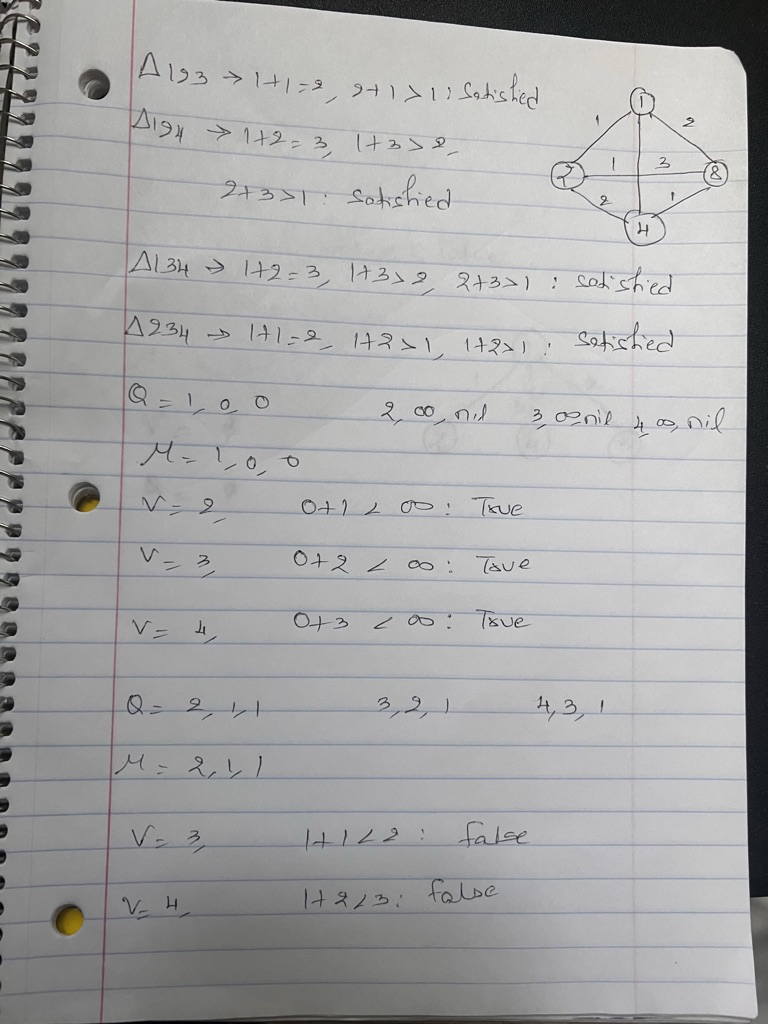 Δ123 → 1+1=2, 2+1>1: Satisfied
Δ124 → 1+2=3, 1+3>2,
2+3>1: satisfied
1
1
2
2
1
3
8
2
1
4
Δ134 → 1+2=3, 1+3>2, 2+3>1: satisfied
Δ234 → 1+1=2, 1+2>1, 1+2>1: satisfied
Q = 1, 0, 0 2, ∞, nil 3, ∞, nil 4, ∞, nil
M = 1, 0, 0
V = 2, 0+1 < ∞: True
V = 3, 0+2 < ∞: True
V = 4, 0+3 < ∞: True
Q = 2, 1, 1 3, 2, 1 4, 3, 1
M = 2, 1, 1
V = 3, 1+1<2: false
V = 4, 1+2<3: false